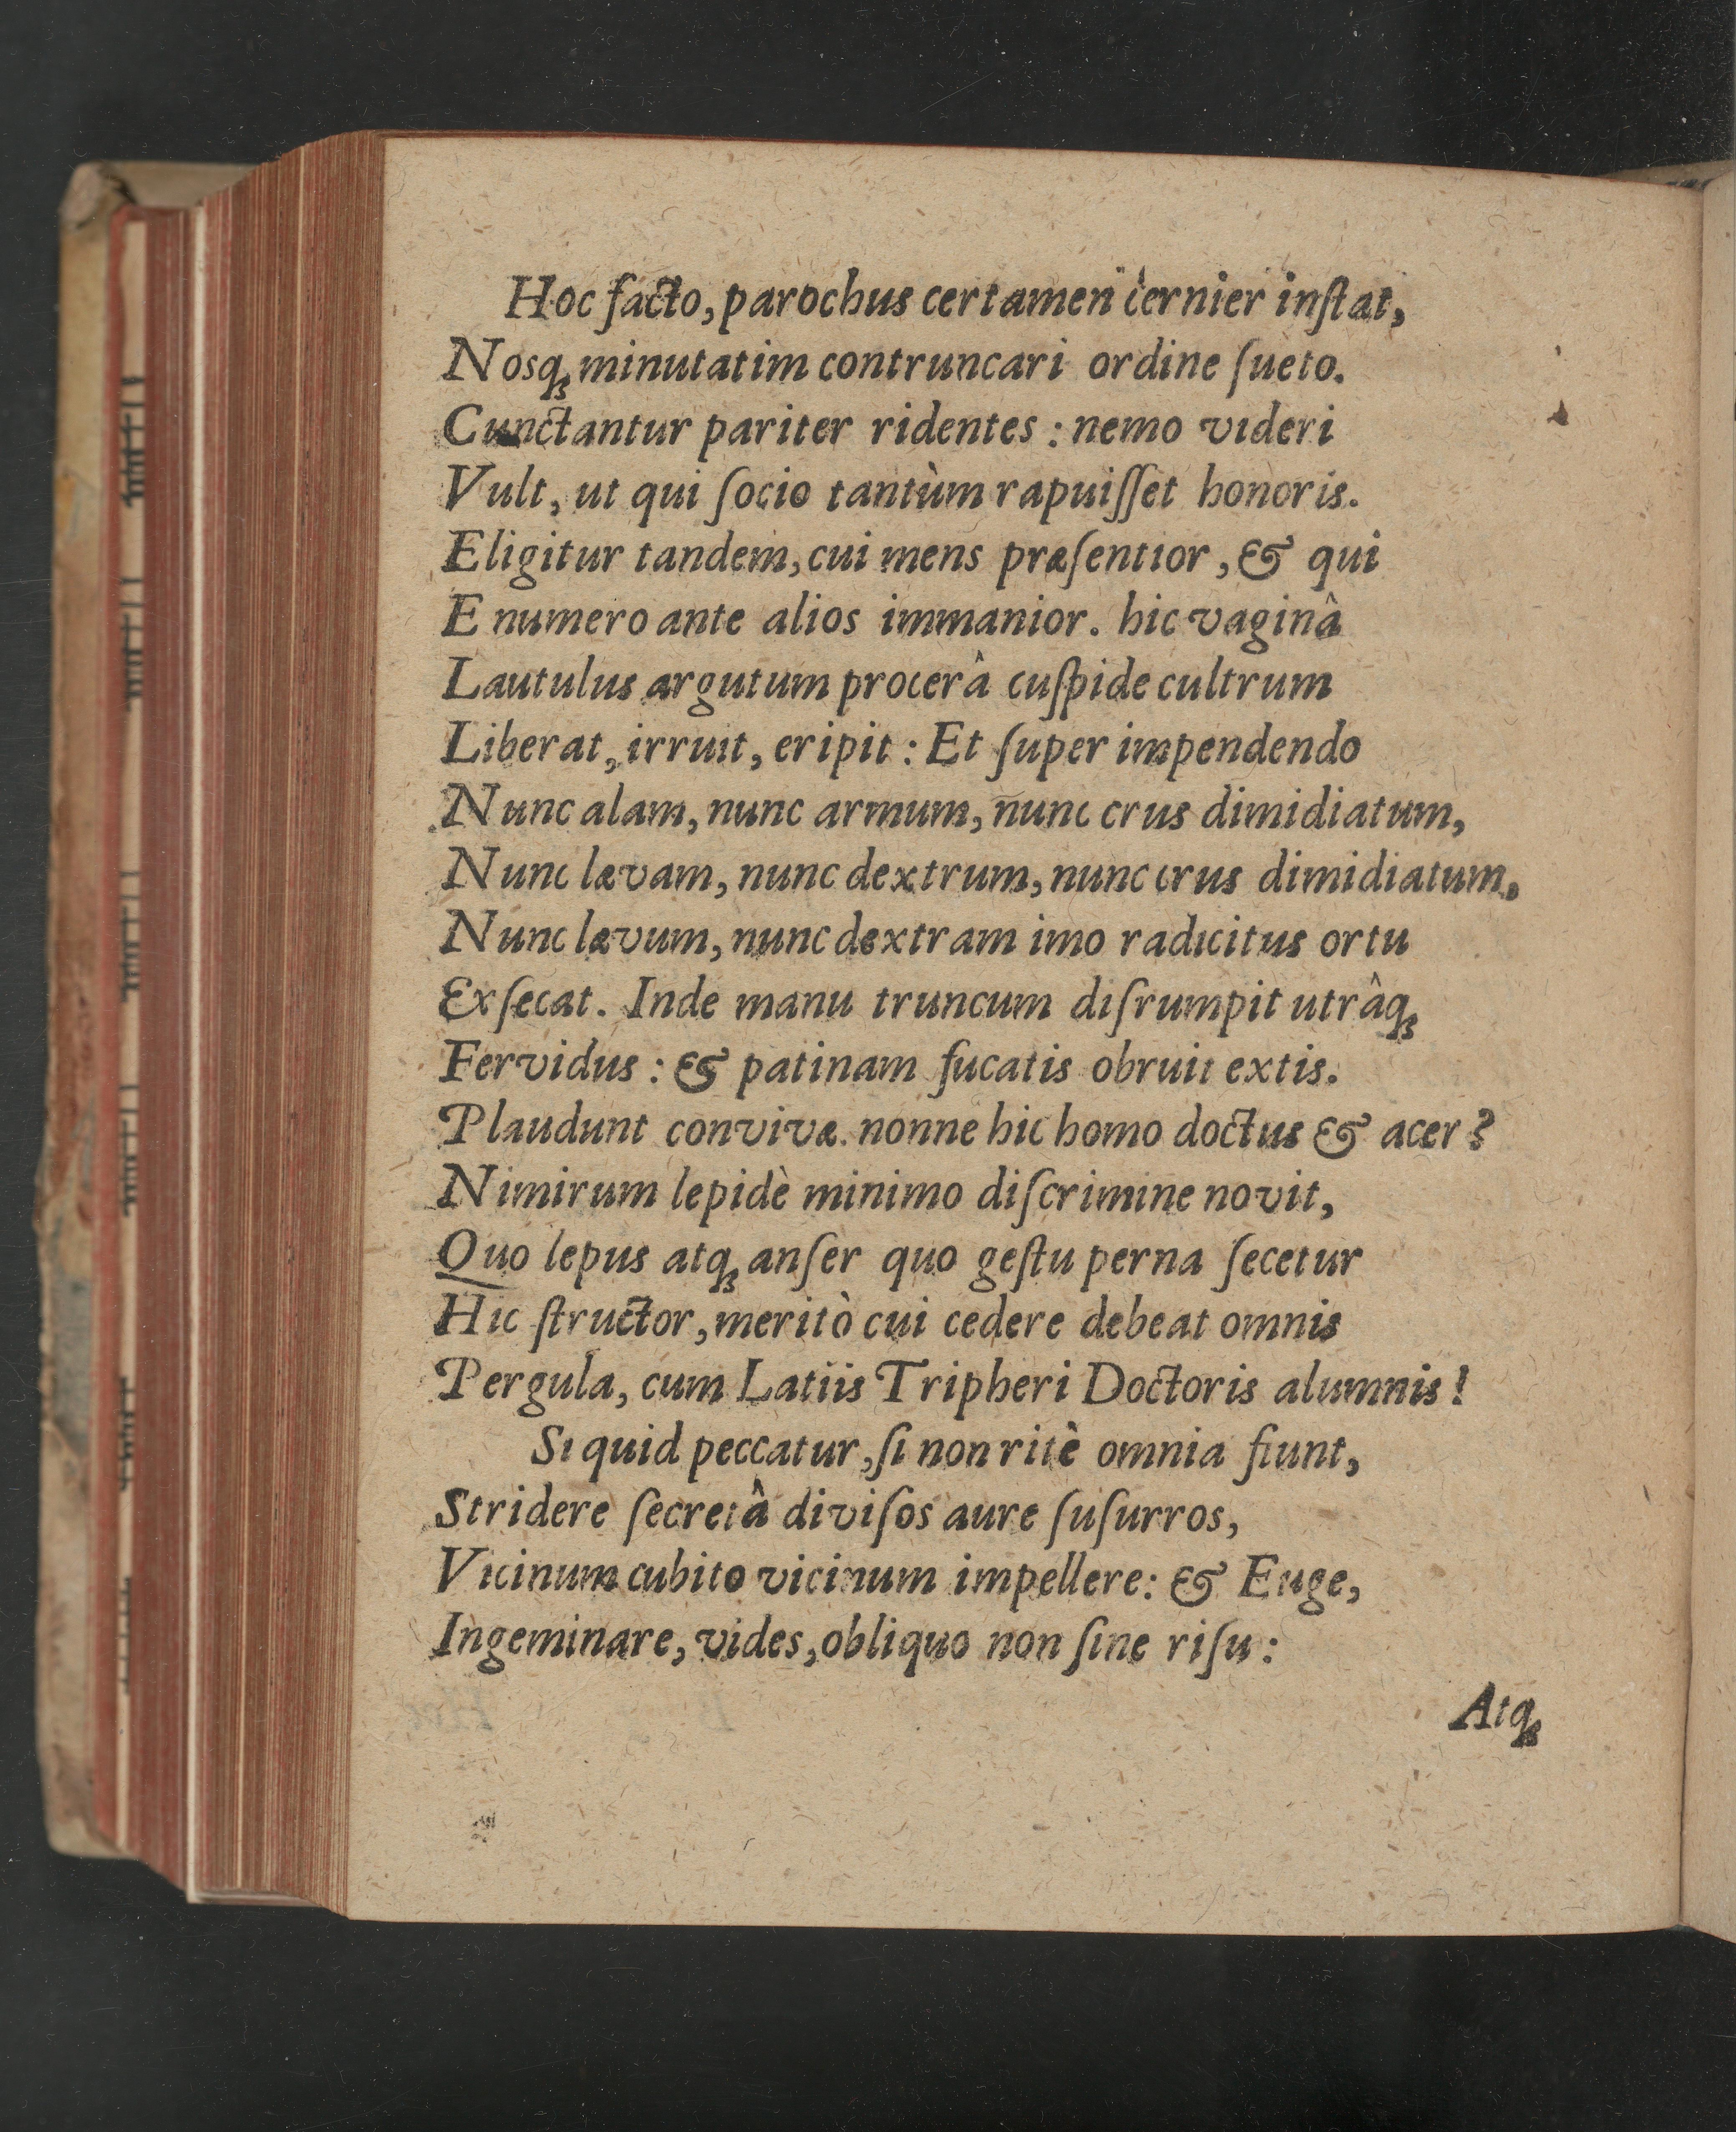 Hoc facto, parochus certamen cernier inſtat,
Nosq́ꝫ minutatim contruncari ordine ſueto.
Cunctantur pariter ridentes : nemo videri
Vult, ut qui ſocio tantùm rapuiſſet honoris.
Eligitur tandem, cui mens præſentior, & qui
E numero ante alios immanior. hic vaginâ
Lautulus argutum procerâ cuſpide cultrum
Liberat, irruit, eripit : Et ſuper impendendo
Nunc alam, nunc armum, nunc crus dimidiatum,
Nunc lævam, nunc dextrum, nunc crus dimidiatum,
Nunc lævum, nunc dextram imo radicitus ortu
Exſecat. Inde manu truncum diſrumpit utrâqꝫ
Fervidus : & patinam fucatis obruit extis.
Plaudunt convivæ. nonne hic homo doctus & acer?
Nimirum lepidè minimo diſcrimine novit,
Quo lepus atqꝫ anſer quo geſtu perna ſecetur
Hic ſtructor, meritò cui cedere debeat omnis
Pergula, cum Latiis Tripheri Doctoris alumnis!
Si quid peccatur, ſi non ritè omnia fiunt,
Stridere ſecretâ diviſos aure ſuſurros,
Vicinum cubito vicinum impellere: & Euge,
Ingeminare, vides, obliquo non ſine riſu :
Atqꝫ